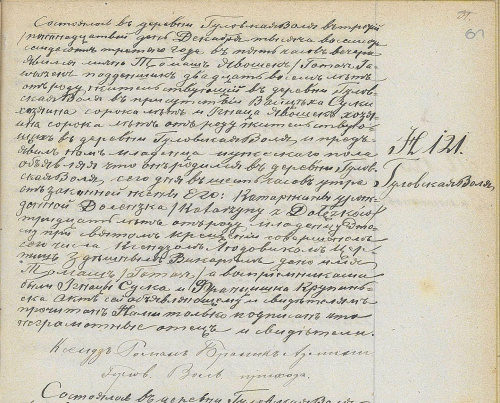 Состоялся въ деревни Гуловская Воля въ третій
/пятнадцатый день Декабря тысяча восемьсотъ
семдесятъ третяго года въ пять часовъ вечера
явился лично Томашъ Явошекъ /Tomasz Ja-
поденщикъ двадцать восемь лѣтъ
отъ роду, жительствующій въ деревни Гулов-
ская Воля въ присутствіи Войцеха Сулки
сорока лѣтъ и Игнаца Явошекъ хозя-
ина сорока лѣтъ отъ роду жительствую-
щихъ въ деревни Гуловская Воля, и предъ-
явилъ намъ младенца мужескаго пола
объявляя что онъ родился въ деревни Гулов-
ская Воля, сего дня въ шесть часовъ утра
отъ законной жены Его: Катаржины урож-
донной Долензка /Katarzyny z Dołęzków/
тридцать лѣтъ отъ роду младенцу Это-
му при святомъ крещеніи совершенномъ
сего числа Ксендзомъ Людовикомъ
Викаріемъ дано имя
Томашъ /Tomasz/, а воспріемниками
были Игнацъ Сулка и Францишка Крупинь-
ска Актъ сей объявляющему и свидѣтелямъ
прочитанъ Нами только подписанъ ибо
неграмотные отецъ и свидѣтели.
Ксендзъ Романъ
Воль прихода.
N 121.
Гуловская Воля
Состоялся въ деревни Гуловская Воля